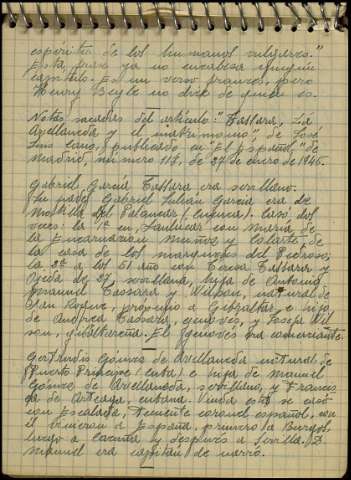 espíritu de los humanos religiosos."
Esta frase ya no encabeza ningún
capítulo. Es un verso francés, pero
Henry Beyle no dice de quién es.
Notas sacadas del artículo: "Tassara, la
Avellaneda y el matrimonio", de José
Luis Cano, publicado en "El Español," de
Madrid, número 117, de 27 de enero de 1945.
Gabriel García Tassara era sevillano.
Su padre, Gabriel Julián García era de
Motilla del Palancar (Cuenca). Casó dos
veces: la 1ª en Sanlúcar con María de
la Encarnación Muñoz y Lobarte, de
la casa de los marqueses del Pedroso;
la 2ª a los 51 año con Teresa Tassara y
Ojeda de 27, sevillana, hija de Antonio
Tassara y Wilson, natural de
San Roque, próximo a Gibraltar, e hijo
de Andrea Tassara, genovés, y Josefa Wil-
son, gibraltareña. El genovés era comerciante.
Gertrudis Gómez de Avellaneda natural de
Puerto Príncipe (Cuba) e hija de Manuel
Gómez de Avellaneda, sevillano, y Francis-
ca de Arteaga, cubana. Viuda esta se casó
con Escalada, teniente coronel español, con
él vinieron a España, primero a Burgos
luego a Coruña y después a Sevilla. D.
Manuel era capitán de navío.